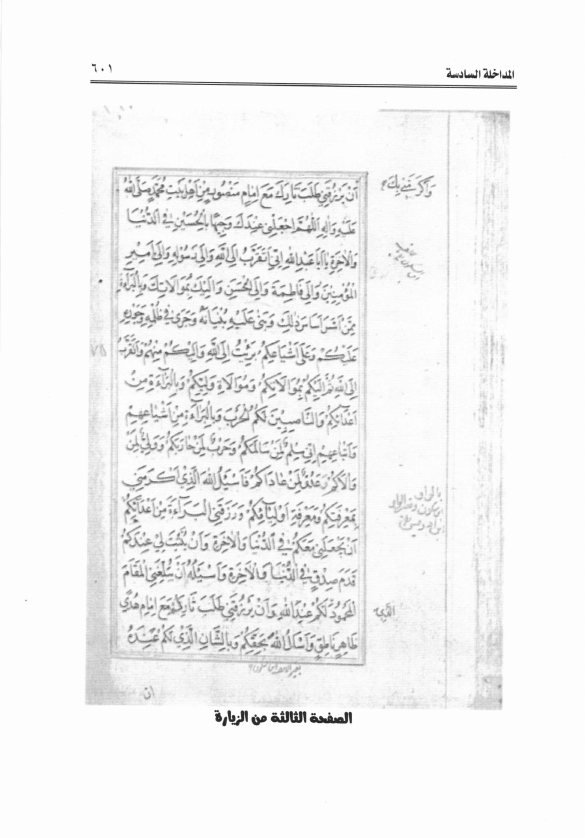 المداخلة السادسة
٦٠١
أن يرزقني طلب ثارك مع إمام منصور من أهل بيت محمد صلى الله
عليه وآله اللهم اجعلني عندك وجيها بالحسين في الدنيا
والآخرة يا أبا عبد الله إني أتقرب إلى الله وإلى رسوله وإلى أمير
المؤمنين وإلى فاطمة وإلى الحسن وإليك بموالاتك وبالبراءة
ممن أسس أساس ذلك وبنى عليه بنيانه وجرى في ظلمه وجوره
عليكم وعلى أشياعكم برئت إلى الله وإليكم منهم وأتقرب
إلى الله ثم إليكم بموالاتكم وموالاة وليكم وبالبراءة من
أعدائكم والناصبين لكم الحرب وبالبراءة من أشياعهم
وأتباعهم إني سلم لمن سالمكم وحرب لمن حاربكم وولي لمن
والاكم وعدو لمن عاداكم فأسئل الله الذي أكرمني
بمعرفتكم ومعرفة أوليائكم ورزقني البراءة من أعدائكم
أن يجعلني معكم في الدنيا والآخرة وأن يثبت لي عندكم
قدم صدق في الدنيا والآخرة وأسئله أن يبلغني المقام
المحمود لكم عند الله وأن يرزقني طلب ثاركم مع إمام هدى
ظاهر ناطق وأسأل الله بحقكم وبالشأن الذي لكم عنده
الصفحة الثالثة من الزيارة